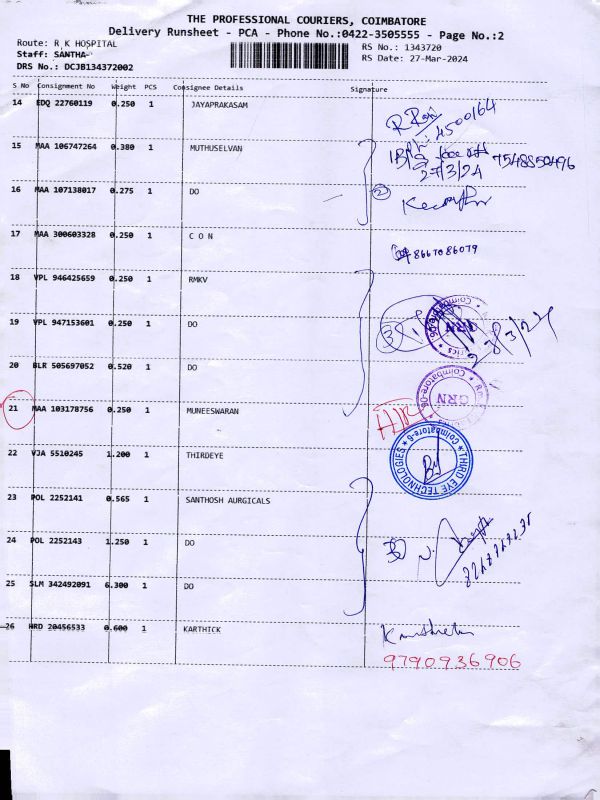 THE PROFESSIONAL COURIERS, COIMBATORE
Delivery Runsheet - PCA - Phone No.:0422-3505555 - Page No.:2
Route: R K HOSPITAL
RS No.: 1343720
Staff: SANTHA-
RS Date: 27-Mar-2024
DRS No.: DCJB134372002
S No Consignment No Weight PCS Consignee Details Signature
14 EDQ 22760119 0.250 1 JAYAPRAKASAM
4500164
15 MAA 106747264 0.380 1 MUTHUSELVAN
7548850496
27/3/24
16 MAA 107138017 0.275 1 DO
2
17 MAA 300603328 0.250 1 C O N
8667086079
18 VPL 946425659 0.250 1 RMKV
19 VPL 947153601 0.250 1 DO
3
GRN
20 BLR 505697052 0.520 1 DO
Coimbatore
GRN
21 MAA 103178756 0.250 1 MUNEESWARAN
22 VJA 5510245 1.200 1 THIRDEYE
THIRD EYE TECHNOLOGIES
Coimbatore-6
23 POL 2252141 0.565 1 SANTHOSH AURGICALS
24 POL 2252143 1.250 1 DO
25 SLM 342492091 6.300 1 DO
26 HRD 20456533 0.600 1 KARTHICK
9790936906